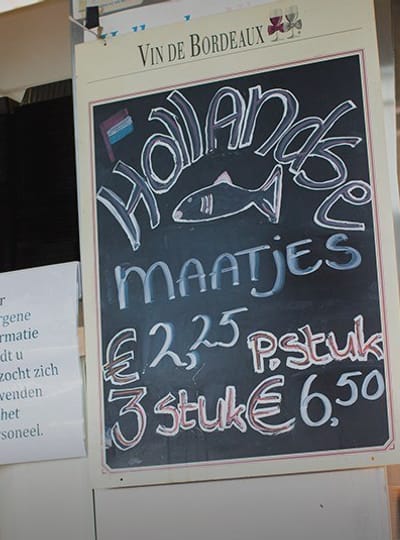 Vin de Bordeaux
Hollandse
maatjes
€ 2,25 p.stuk
3 stuk € 6,50
r
rgene
rmatie
dt u
zocht zich
wenden
het
rsoneel.